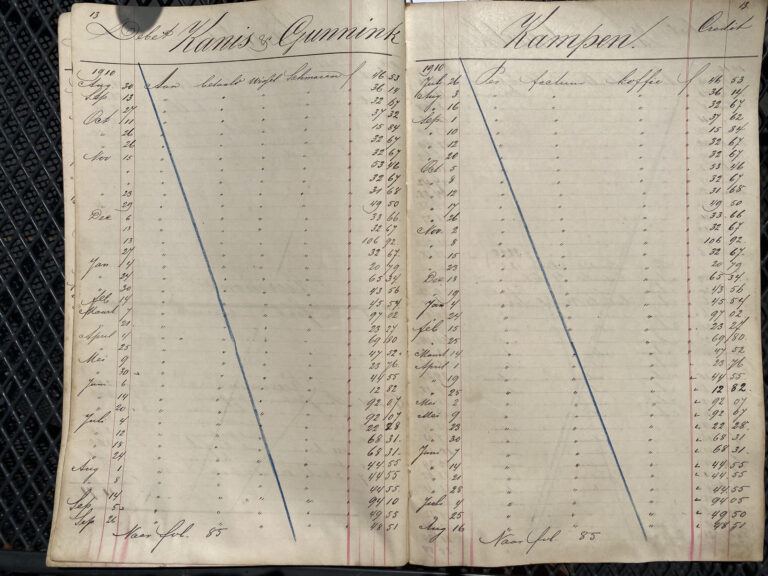 13
Debet Kanis & Gunnink
1910
Aug 30 Aan betaald Wissel Schmaren f 46 53
Sep 13 " " " " " 36 14
" 27 " " " " " 32 67
Oct 11 " " " " " 37 32
" 26 " " " " " 15 84
" 26 " " " " " 32 67
Nov 15 " " " " " 32 67
" " " " " " 53 46
" " " " " " 32 67
" 23 " " " " " 31 68
" 29 " " " " " 49 50
Dec 6 " " " " " 33 66
" 13 " " " " " 32 67
" 13 " " " " " 106 92
" 27 " " " " " 32 67
Jan 4 " " " " " 20 79
" 24 " " " " " 65 34
" 30 " " " " " 43 56
Feb 14 " " " " " 45 54
Maart 7 " " " " " 97 02
" 21 " " " " " 23 27
April 4 " " " " " 69 80
" 25 " " " " " 47 52
Mei 9 " " " " " 23 76
" 30 " " " " " 44 55
Juni 6 " " " " " 12 82
" 14 " " " " " 92 07
" 20 " " " " " 92 07
Juli 4 " " " " " 22 28
" 12 " " " " " 68 31
" 18 " " " " " 68 31
" 24 " " " " " 44 55
Aug 1 " " " " " 44 55
" 8 " " " " " 44 55
" 14 " " " " " 94 10
Sep 5 " " " " " 49 53
Sep 26 " " " " " 48 51
Naar fol. 85
13
Kampen. Credit
1910
Juli 26 Per factuur koffie f 46 53
Aug 3 " " " " 36 14
" 16 " " " " 32 67
Sep 1 " " " " 37 62
" 10 " " " " 15 84
" 12 " " " " 32 67
" 20 " " " " 32 67
Oct 5 " " " " 53 46
" 8 " " " " 32 67
" 12 " " " " 31 68
" 17 " " " " 49 50
" 26 " " " " 33 66
Nov. 2 " " " " 32 67
" 8 " " " " 106 92
" 15 " " " " 32 67
" 23 " " " " 20 79
Dec 13 " " " " 65 34
" 19 " " " " 43 56
Jan 4 " " " " 45 54
" 24 " " " " 97 02
feb 15 " " " " 23 27
" 25 " " " " 69 80
Maart 14 " " " " 47 52
April 1 " " " " 23 76
" 19 " " " " 44 55
" 25 " " " " 12 82
Mei 2 " " " " 92 07
Mei 9 " " " " 92 67
" 23 " " " " 22 28
" 30 " " " " 68 31
Juni 7 " " " " 68 31
" 14 " " " " 44 55
" 21 " " " " 44 55
" 28 " " " " 44 55
Juli 4 " " " " 94 05
" 25 " " " " 49 50
Aug 16 " " " " 48 51
Naar fol 85